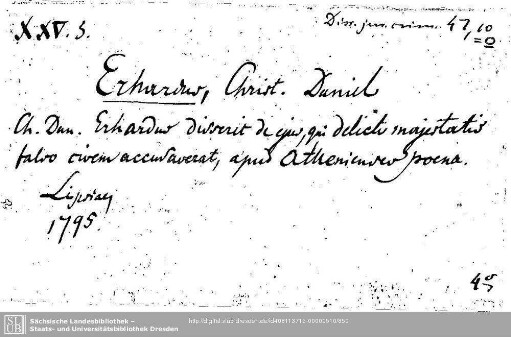 XXV. 5. Diss. jur. crim. 47, 10
Erhardus, Christ. Daniel
Ch. Dan. Erhardus disserit de ejus, qui delicti majestatis
falso civem accusaverat, apud Athenienses poena.
Lipsiae
1795.
4°
SLUB
Sächsische Landesbibliothek –
Staats- und Universitätsbibliothek Dresden